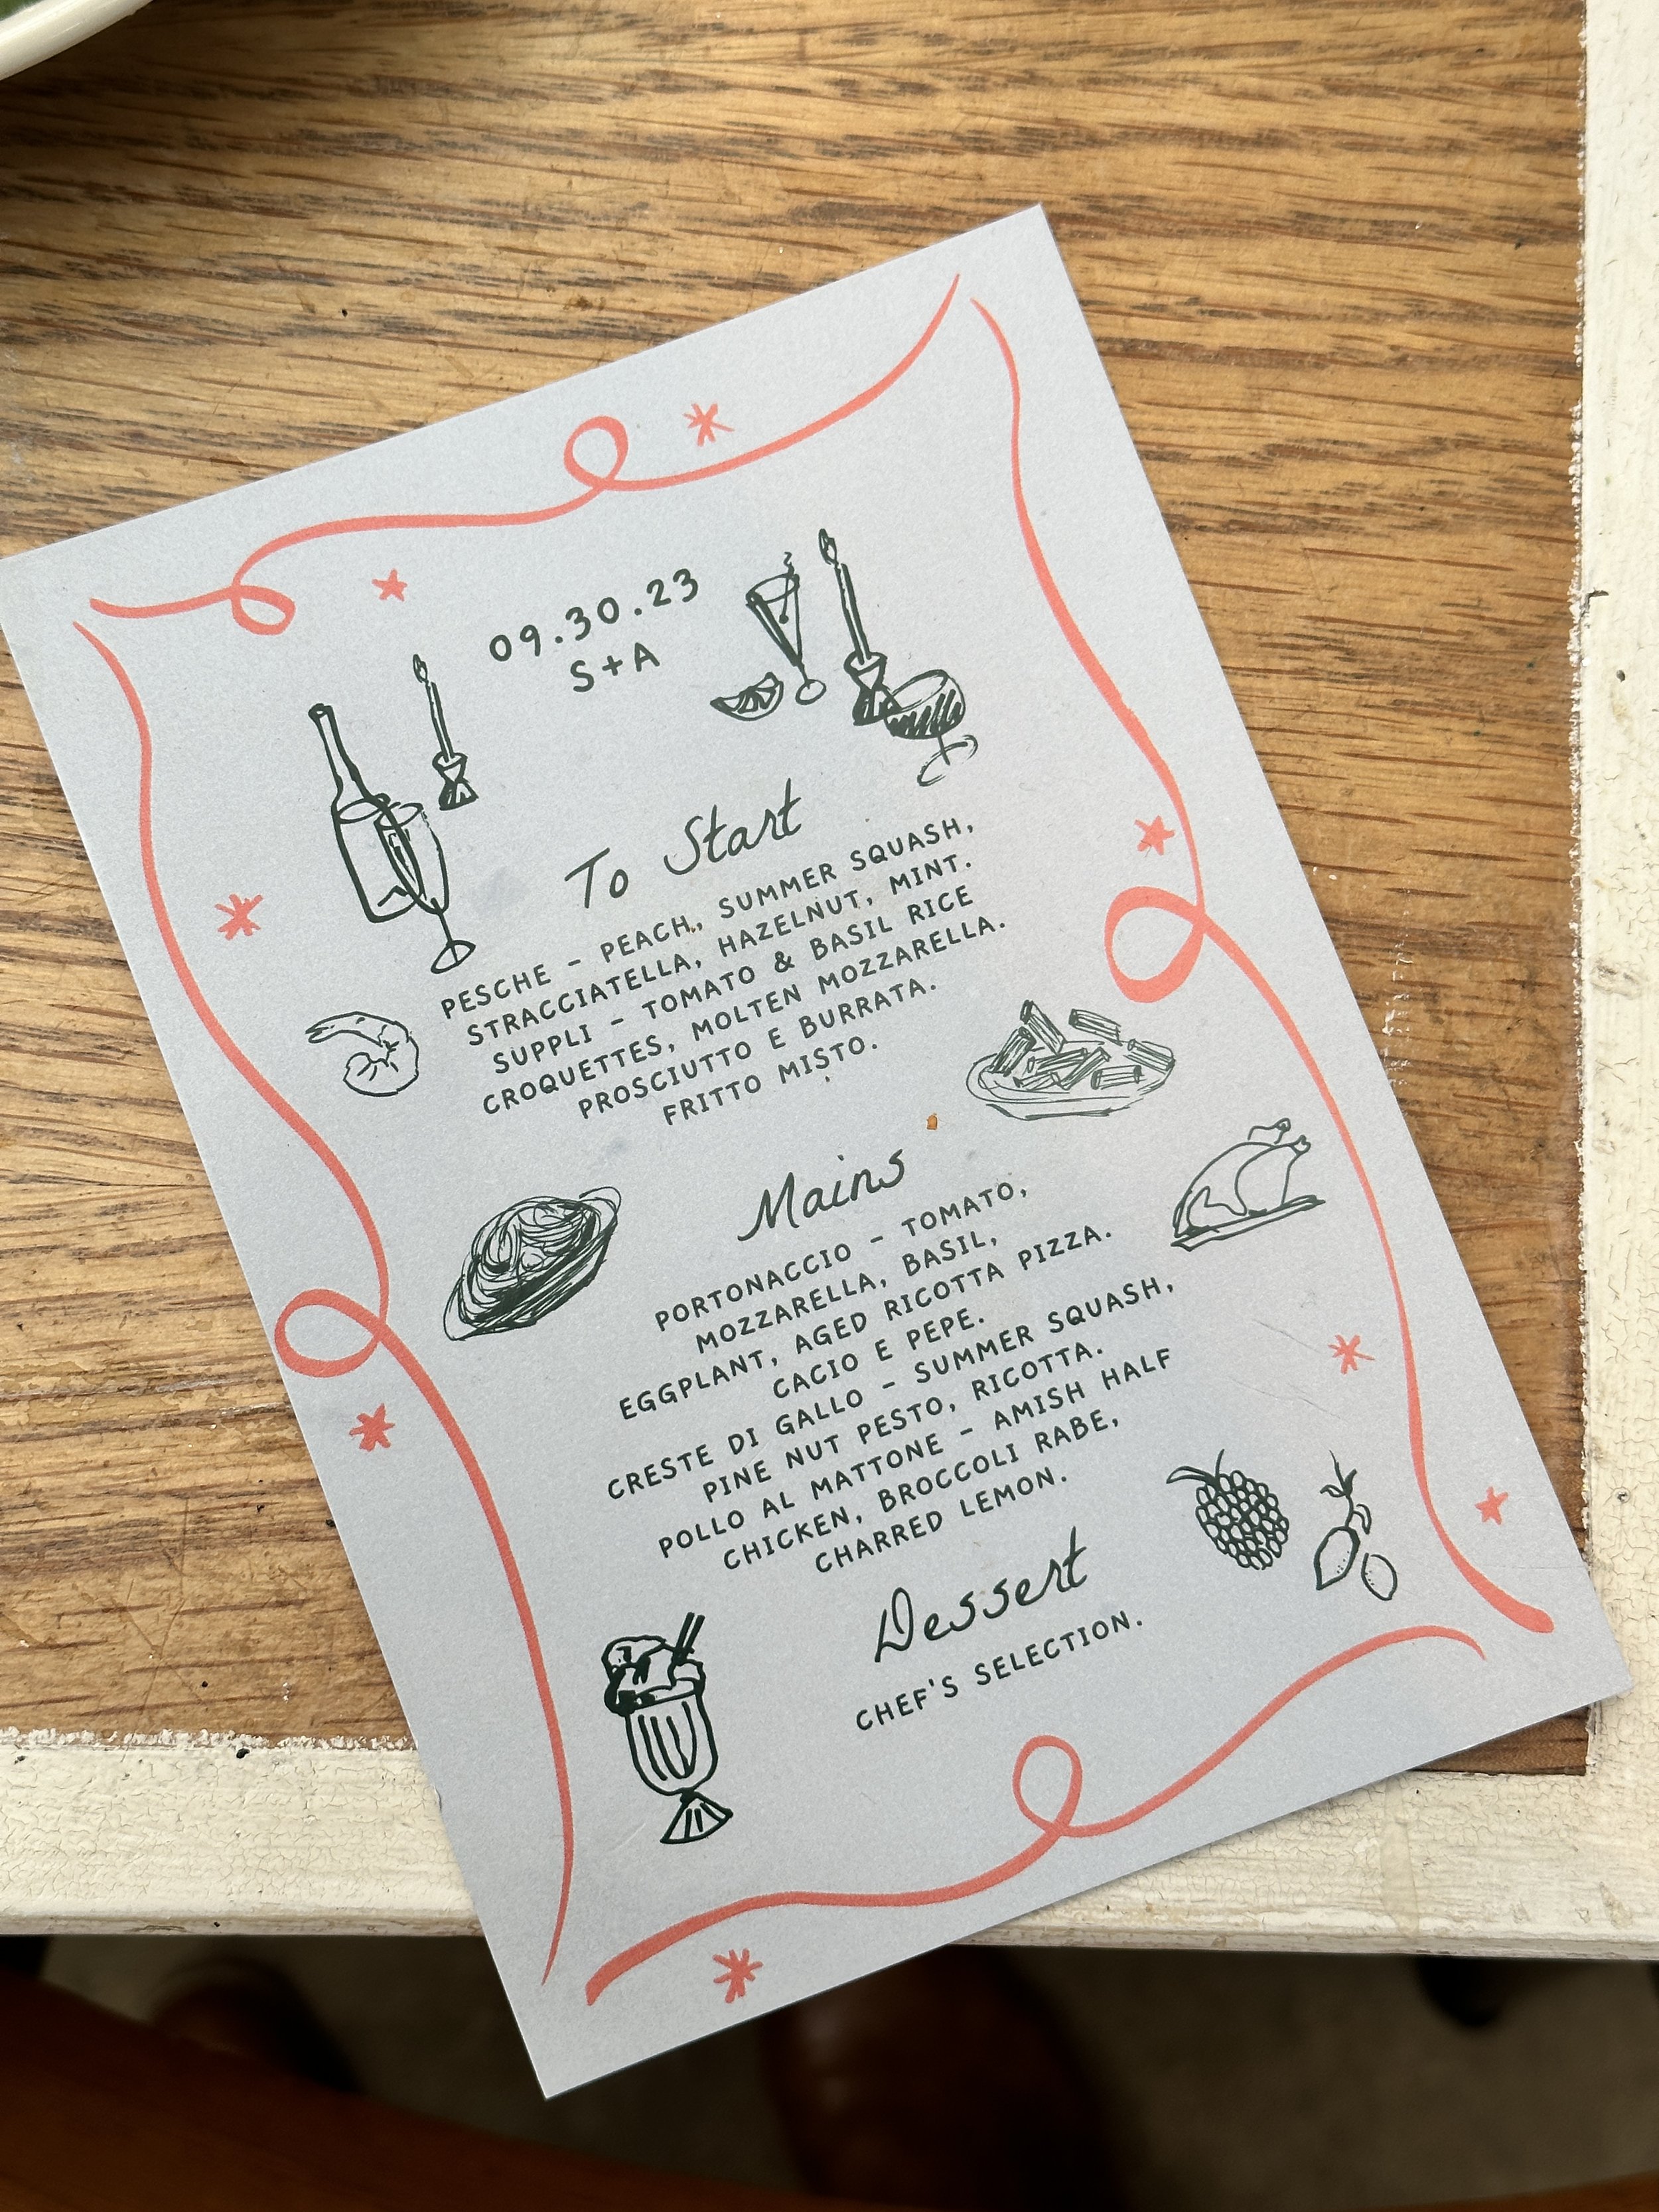 09.30.23
S+A
To Start
PESCHE - PEACH, SUMMER SQUASH,
STRACCIATELLA, HAZELNUT, MINT.
SUPPLI - TOMATO & BASIL RICE
CROQUETTES, MOLTEN MOZZARELLA.
PROSCIUTTO E BURRATA.
FRITTO MISTO.
Mains
PORTONACCIO - TOMATO,
MOZZARELLA, BASIL,
EGGPLANT, AGED RICOTTA PIZZA.
CACIO E PEPE.
CRESTE DI GALLO - SUMMER SQUASH,
PINE NUT PESTO, RICOTTA.
POLLO AL MATTONE - AMISH HALF
CHICKEN, BROCCOLI RABE,
CHARRED LEMON.
Dessert
CHEF'S SELECTION.